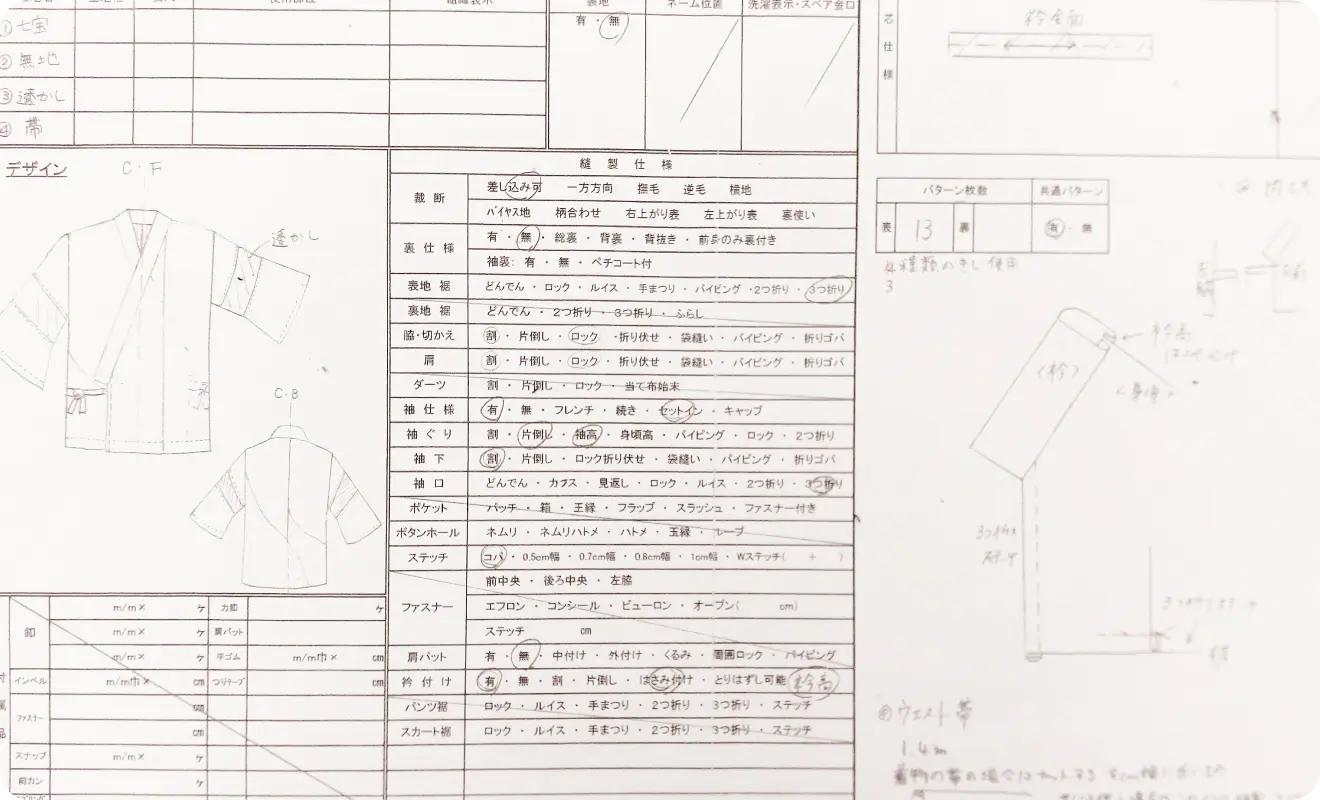 裏地
ネーム位置
洗濯表示・スペア釦口
有・無
① 七宝
② 無地
③ 透かし
④ 帯
芯仕様
衿全面
デザイン
C・F
透かし
C・B
縫製仕様
裁断 差し込み可 一方方向 撫毛 逆毛 横地
バイヤス地 柄合わせ 右上がり表 左上がり表 裏使い
裏仕様 有・無・総裏・背裏・背抜き・前身のみ裏付き
袖裏: 有・無・ペチコート付
表地裾 どんでん・ロック・ルイス・手まつり・パイピング・2つ折り・3つ折り
裏地裾 どんでん・2つ折り・3つ折り・ふらし
脇・切かえ 割・片倒し・ロック・折り伏せ・袋縫い・パイピング・折りゴバ
肩 割・片倒し・ロック・折り伏せ・袋縫い・パイピング・折りゴバ
ダーツ 割・片倒し・ロック・当て布始末
袖仕様 有・無・フレンチ・続き・セットイン・キャップ
袖ぐり 割・片倒し・袖高・身頃高・パイピング・ロック・2つ折り
袖下 割・片倒し・ロック折り伏せ・袋縫い・パイピング・折りゴバ
袖口 どんでん・カフス・見返し・ロック・ルイス・2つ折り・3つ折り
ポケット パッチ・箱・玉縁・フラップ・スラッシュ・ファスナー付き
ボタンホール ネムリ・ネムリハトメ・ハトメ・玉縁・ループ
ステッチ コバ・0.5cm幅・0.7cm幅・0.8cm幅・1cm幅・Wステッチ( + )
ファスナー 前中央・後ろ中央・左脇
エフロン・コンシール・ビューロン・オープン( cm)
ステッチ cm
肩パット 有・無・中付け・外付け・くるみ・周囲ロック・パイピング
衿付け 有・無・割・片倒し・はさみ付け・とりはずし可能 衿高
パンツ裾 ロック・ルイス・手まつり・2つ折り・3つ折り・ステッチ
スカート裾 ロック・ルイス・手まつり・2つ折り・3つ折り・ステッチ
釦 m/m× ヶ 力釦 ヶ
m/m× ヶ 肩パット
m/m× ヶ 平ゴム m/m巾× cm
インベル m/m巾× cm つりテープ cm
ファスナー cm
cm
スナップ m/m× ヶ
前カン ヶ
パターン枚数 共通パターン
表 13 裏 有・無
3
<衿>
衿高
3つ折り
ステッチ
ウエスト帯
1.4m